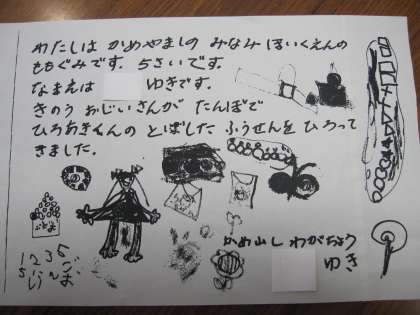 わたしは かめやましの みなみ ほいくえんの
ももぐみです。5さいです。
なまえは ゆきです。
きのう おじいさんが たんぼで
ひろあきくんの とばした ふうせんを ひろって
きました。
ぶどう
かめ山し わがちょう
ゆき